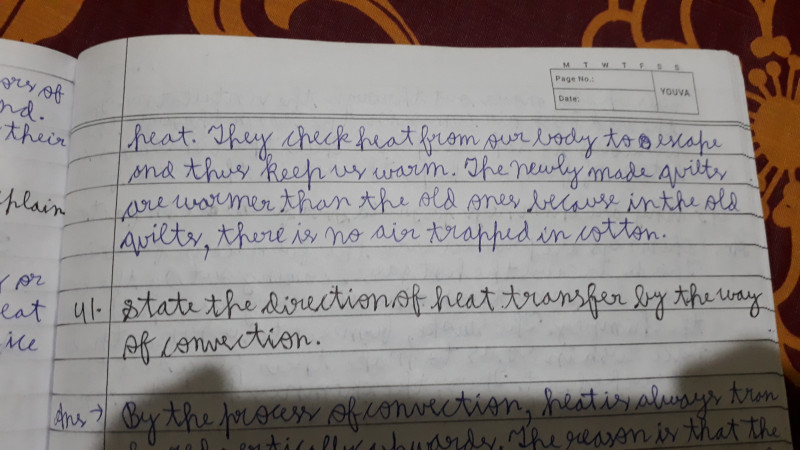 ors of
nd.
their
plain
or
eat
ice
M T W T F S S
Page No.:
Date:
YOUVA
heat. They check heat from our body to escape
and thus keep us warm. The newly made quilts
are warmer than the old ones because in the old
quilts, there is no air trapped in cotton.
41. State the direction of heat transfer by the way
of convection.
Ans → By the process of convection, heat is always tran
vertically upwards. The reason is that the